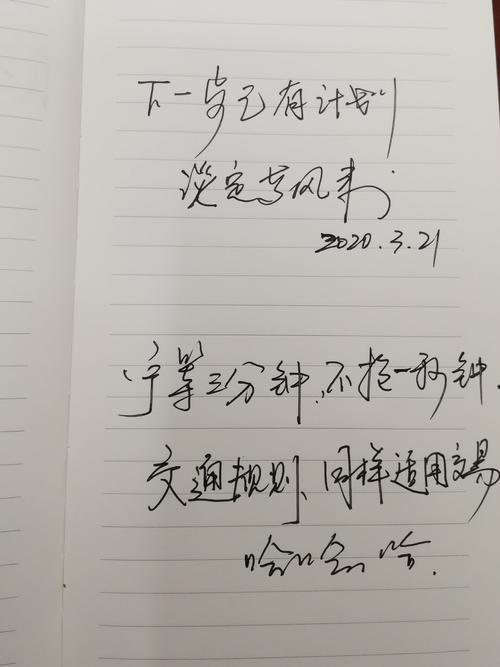 下一步已有计划
淡定等风来
2020.3.21
宁等三分钟,不抢一秒钟.
交通规则、同样适用交易
哈哈哈.